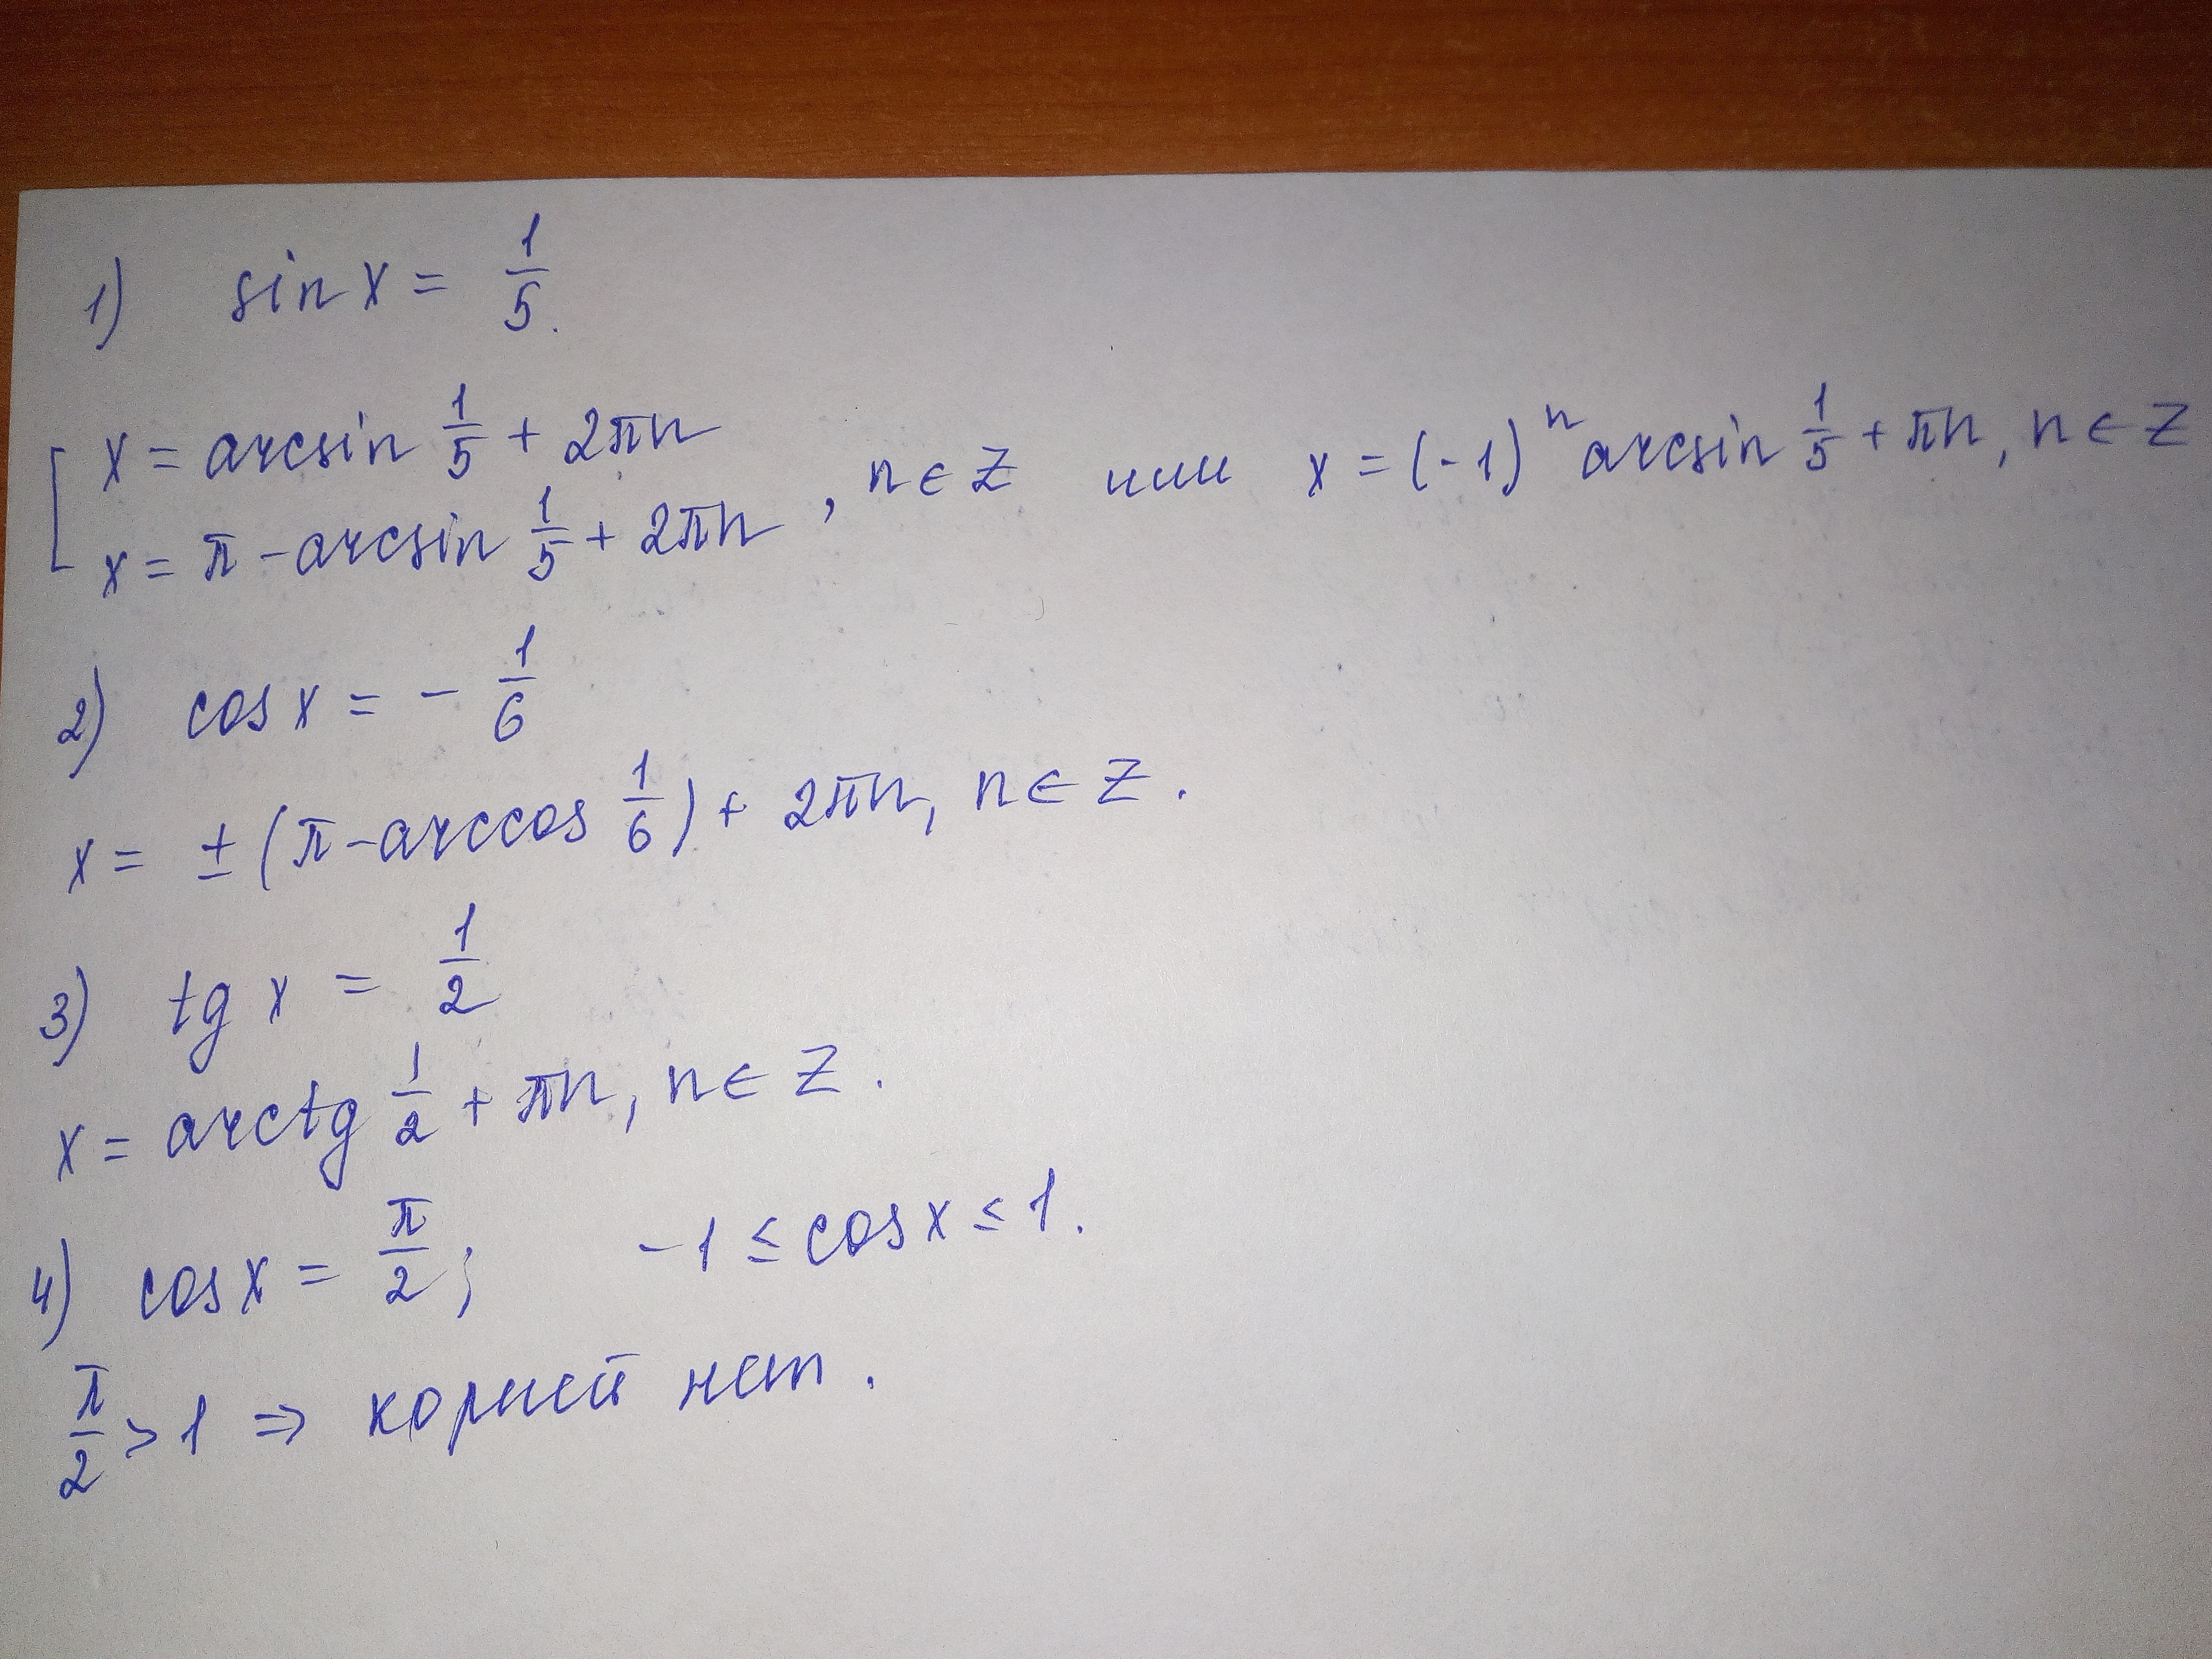 1) sin x = 1/5.
[ x = arcsin 1/5 + 2πn
x = π - arcsin 1/5 + 2πn , n ∈ Z или x = (-1)ⁿ arcsin 1/5 + πn, n ∈ Z
2) cos x = - 1/6
x = ± (π - arccos 1/6) + 2πn, n ∈ Z.
3) tg x = 1/2
x = arctg 1/2 + πn, n ∈ Z.
4) cos x = π/2; -1 ≤ cos x ≤ 1.
π/2 > 1 ⇒ корней нет.